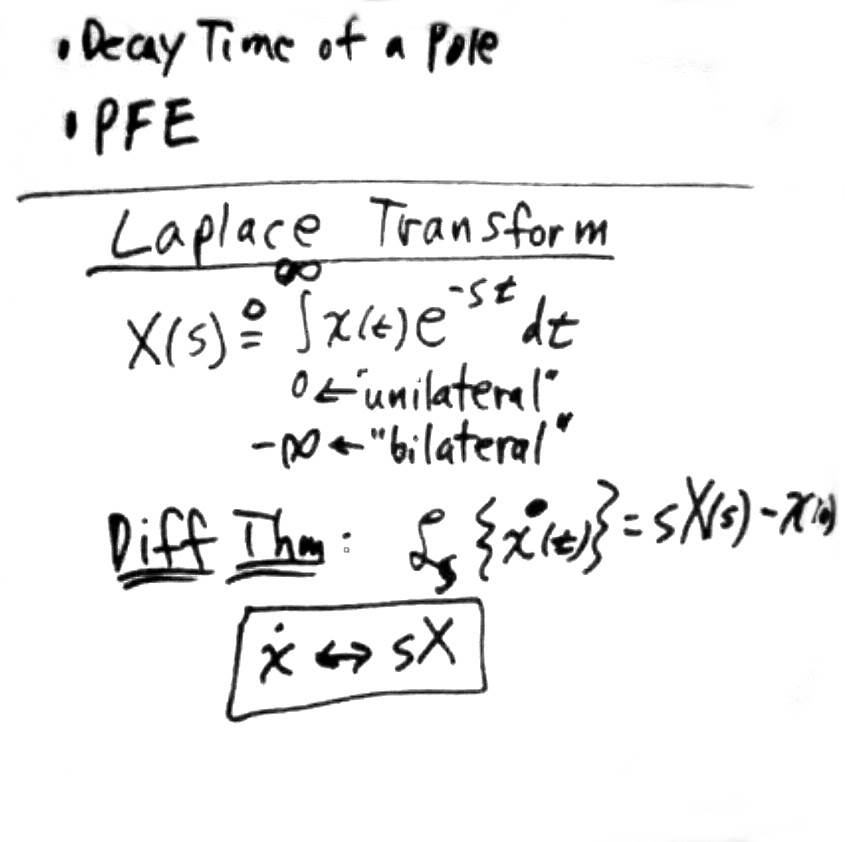 • Decay Time of a Pole
• PFE
Laplace Transform
X(s) ≜ ∫ x(t) e^{-st} dt
∞
0 ← "unilateral"
-∞ ← "bilateral"
Diff Thm: ℒ_s {ẋ(t)} = sX(s) - x(0)
ẋ ↔ sX